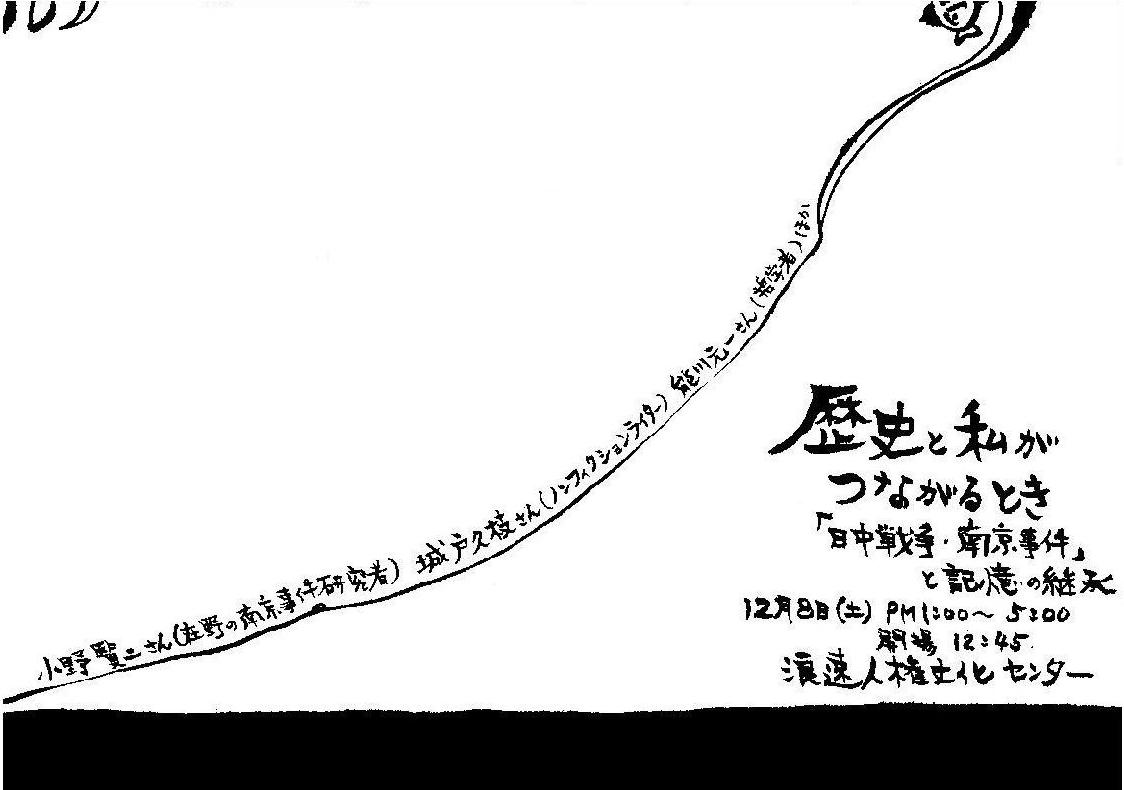 小野賢二さん(在野の南京事件研究者) 城戸久枝さん(ノンフィクションライター) 能川元一さん(哲学者)ほか
歴史と私が
つながるとき
「日中戦争・南京事件」
と記憶の継承
12月8日(土) PM1:00〜5:00
開場 12:45
浪速人権文化センター